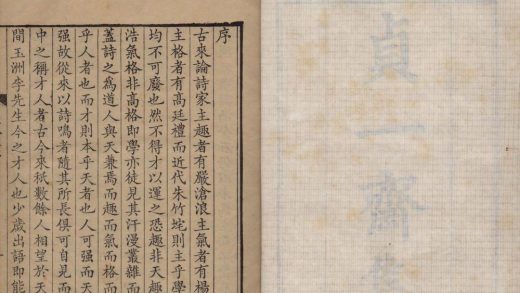 序
古來論詩家主趣者有嚴滄浪主氣者有楊
主格者有高廷禮而近代朱竹垞則主乎學
均不可廢也然不得才以運之恐趣非天趣
浩氣格非高格即學亦徒見其汗漫叢雜而
蓋詩之為道人與天兼焉而趣而氣而格而
乎人者也而才則本乎天者也人可強而天
強故從來以詩鳴者隨其所長俱可自見而
中之稱才人者古今來祇數餘人相望於天
間玉洲李先生今之才人也少歲出語即能
貞一齋